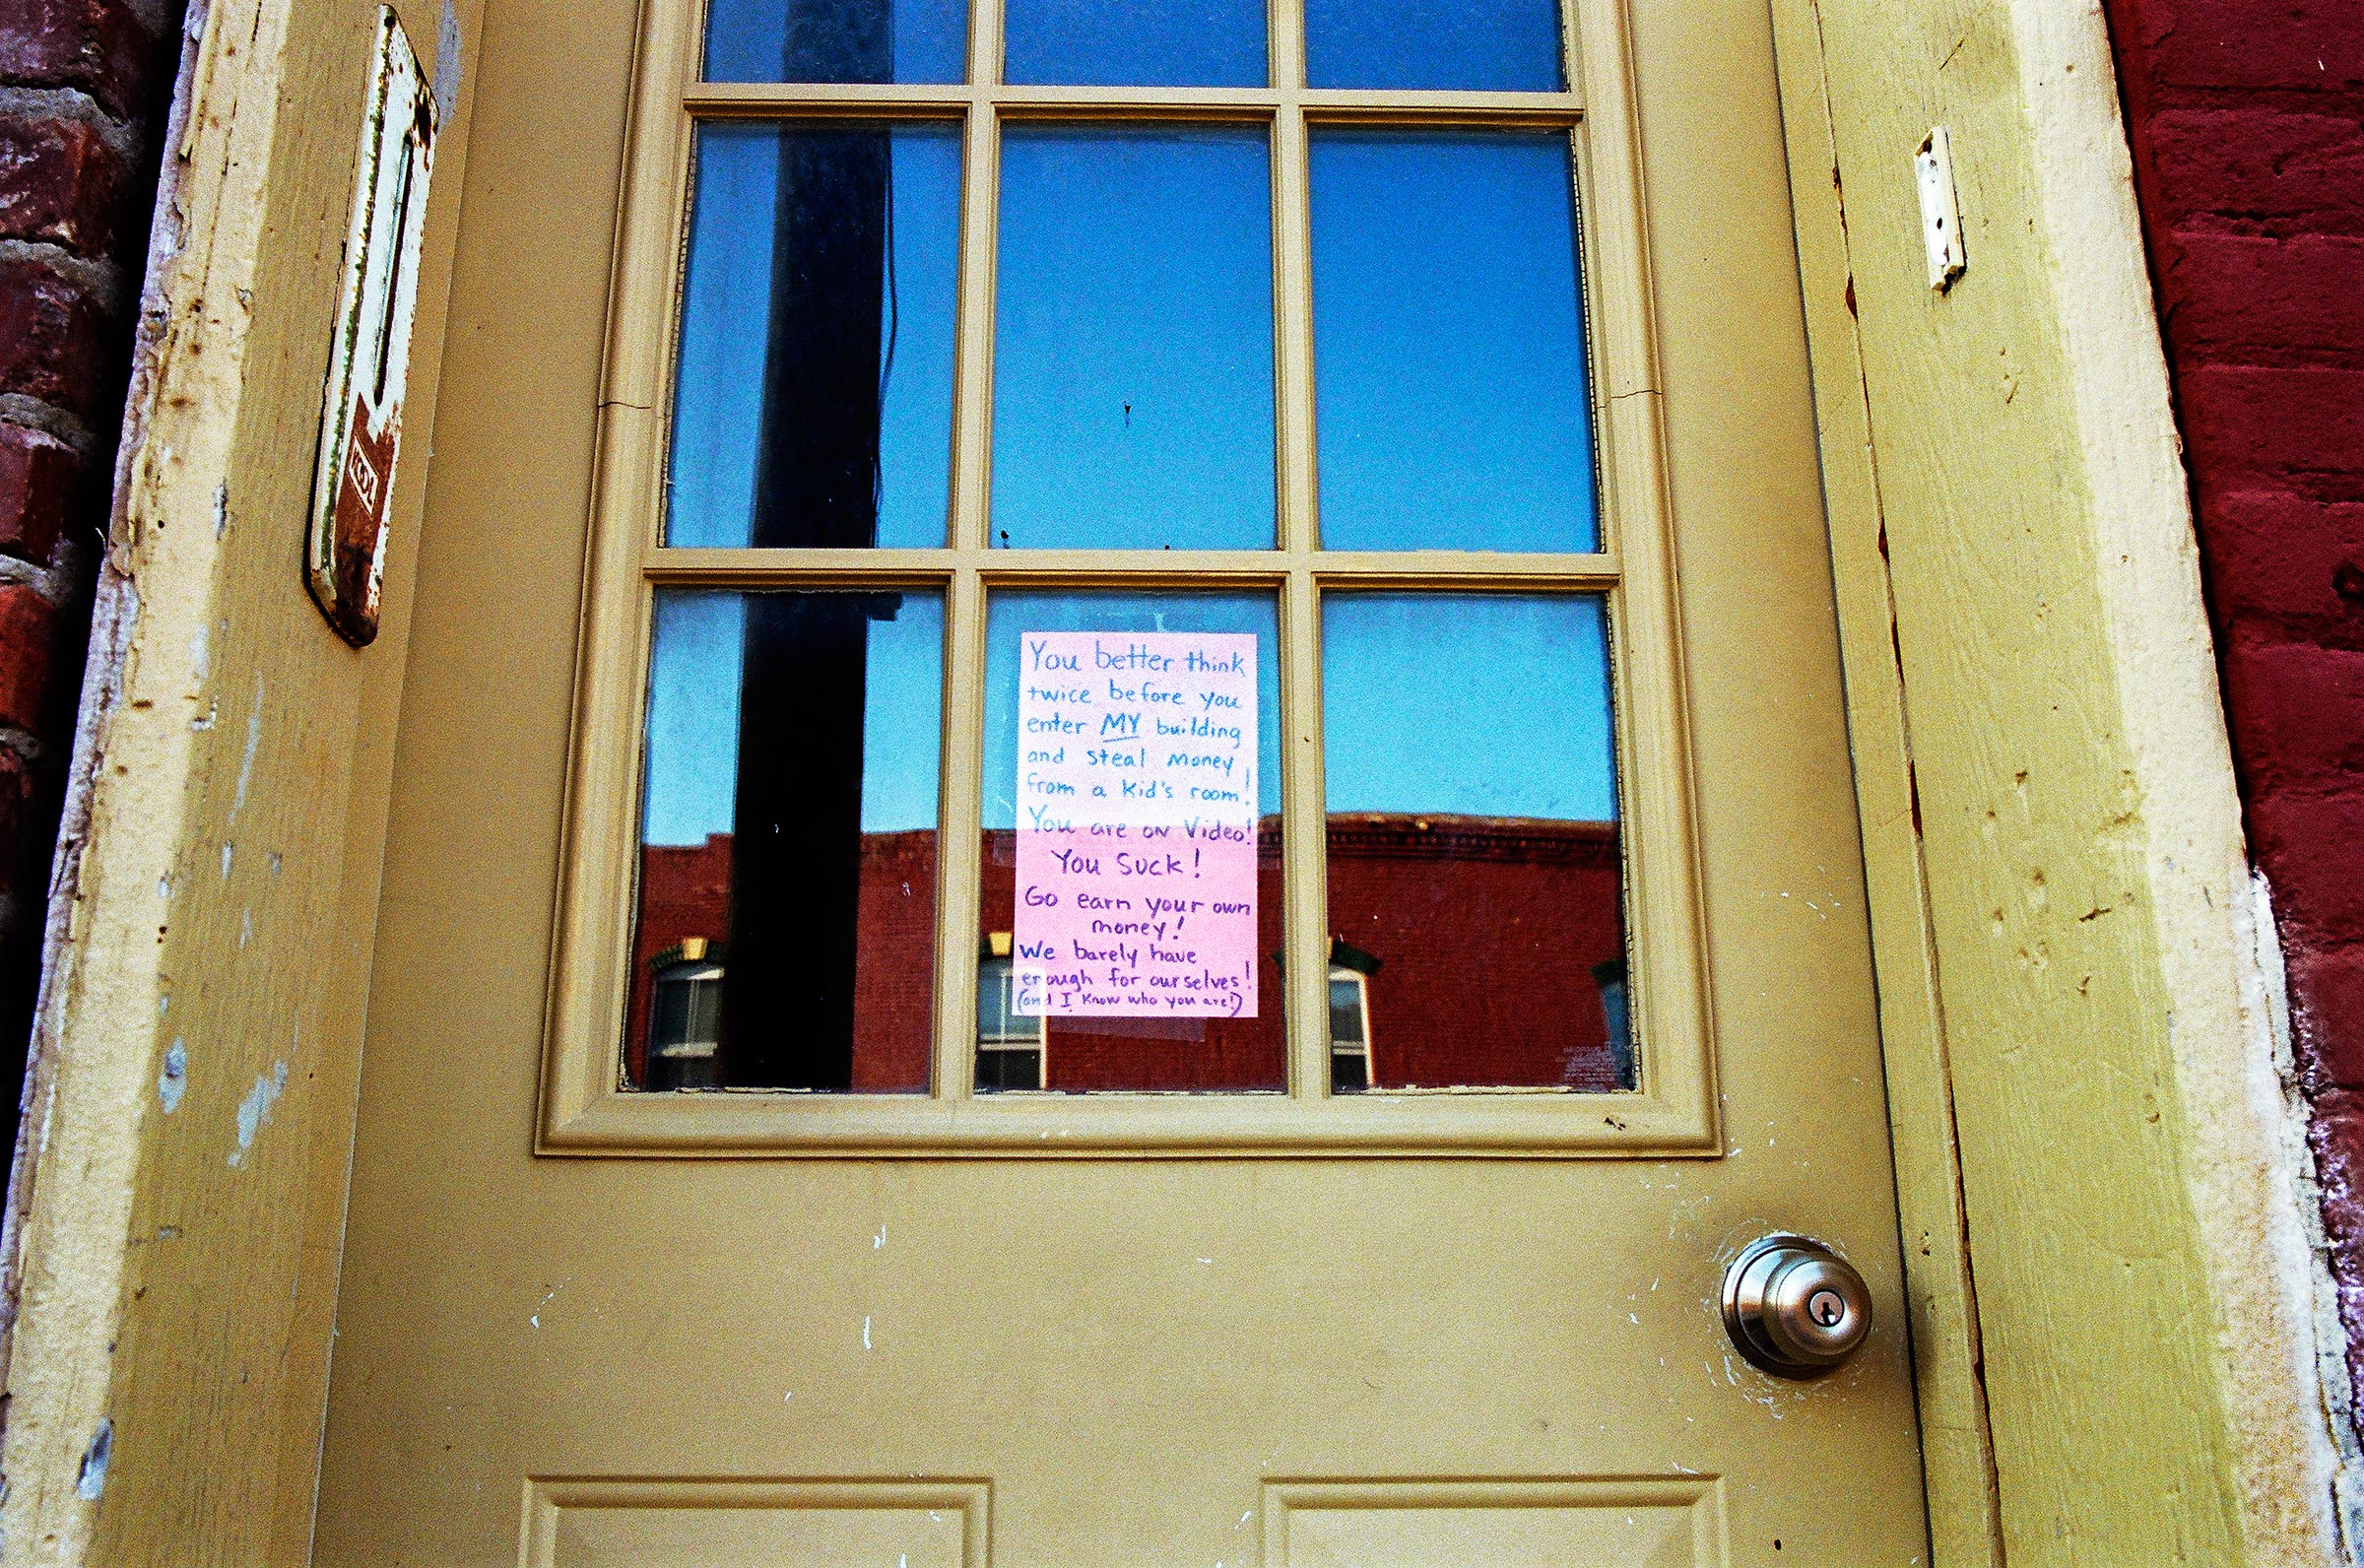 You better think
twice before you
enter MY building
and steal money
from a kid's room!
You are on Video!
You Suck!
Go earn your own
money!
We barely have
enough for ourselves!
(and I know who you are!)